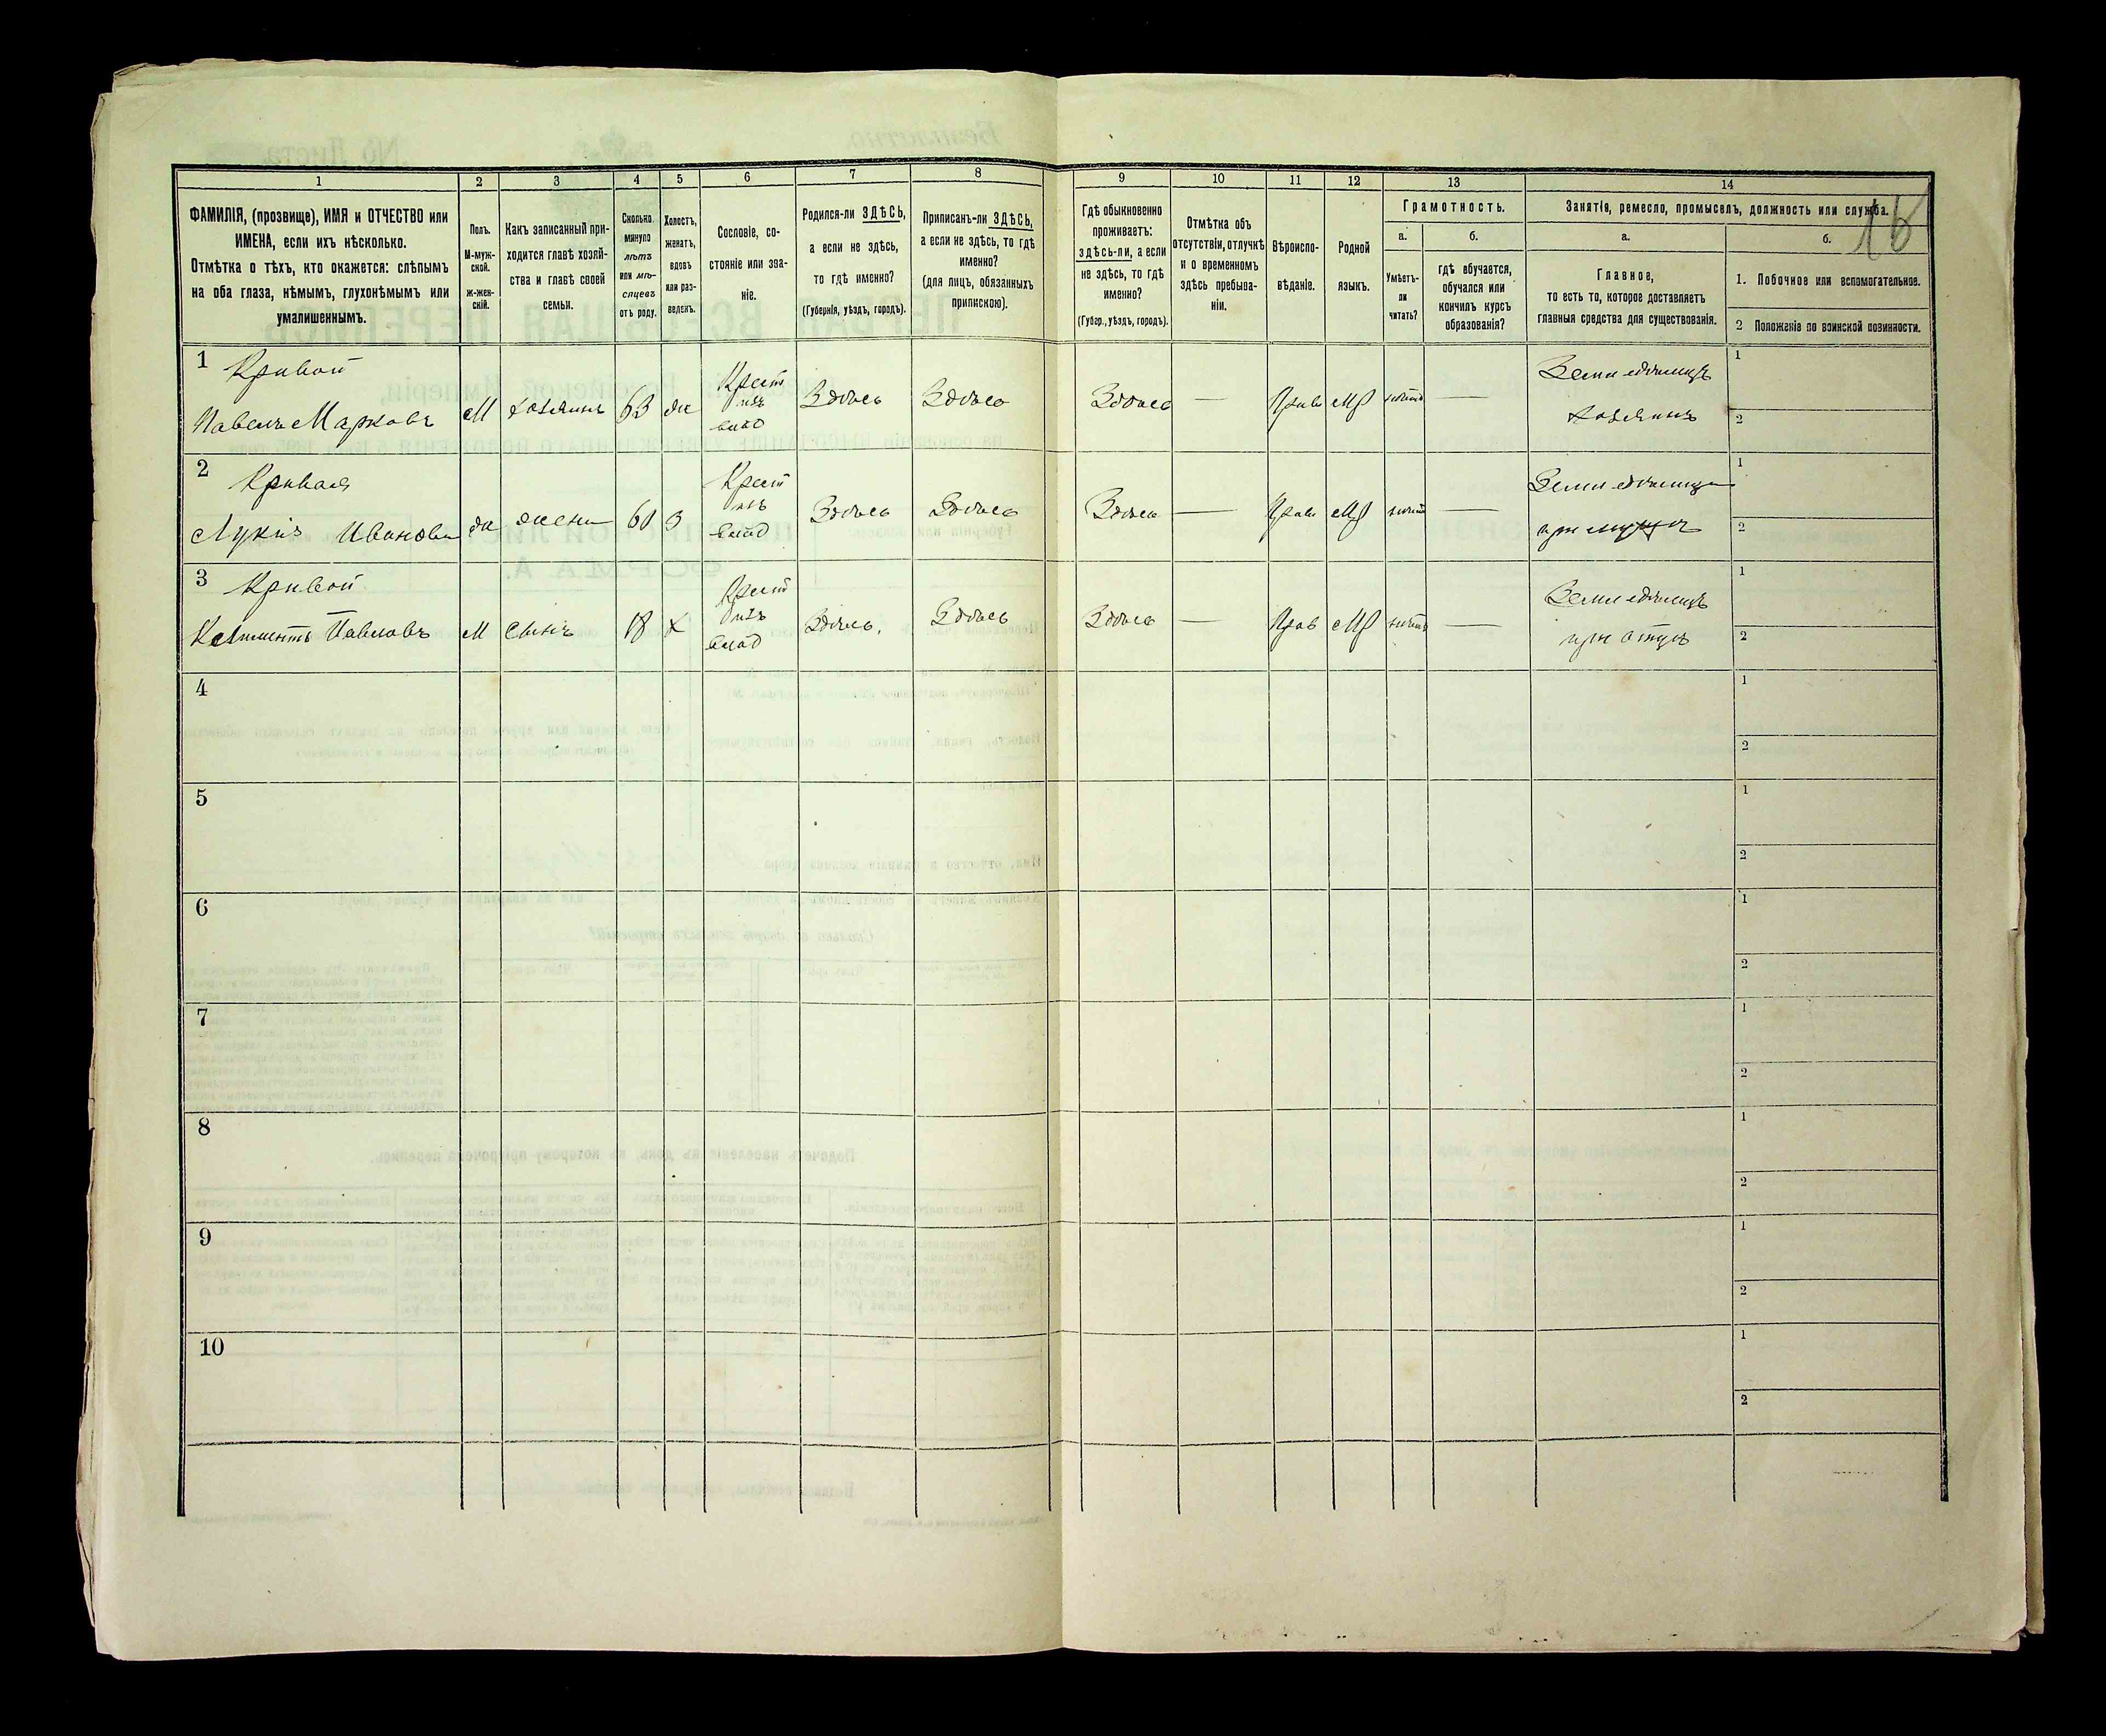 1 2 3 4 5 6 7 8 9 10 11 12 13 14
ФАМИЛІЯ, (прозвище), ИМЯ и ОТЧЕСТВО или
ИМЕНА, если ихъ нѣсколько.
Отмѣтка о тѣхъ, кто окажется: слѣпымъ
на оба глаза, нѣмымъ, глухонѣмымъ или
умалишеннымъ.
Полъ.
М-муж-
ской.
ж-жен-
скій.
Какъ записанный при-
ходится главѣ хозяй-
ства и главѣ своей
семьи.
Сколько
минуло
лѣтъ
или мѣ-
сяцевъ
отъ роду.
Холостъ,
женатъ,
вдовъ
или раз-
веденъ.
Сословіе, со-
стояніе или зва-
ніе.
Родился-ли ЗДѢСЬ,
а если не здѣсь,
то гдѣ именно?
(Губернія, уѣздъ, городъ).
Приписанъ-ли ЗДѢСЬ,
а если не здѣсь, то гдѣ
именно?
(для лицъ, обязанныхъ
припискою).
Гдѣ обыкновенно
проживаетъ:
здѣсь-ли, а если
не здѣсь, то гдѣ
именно?
(Губер., уѣздъ, городъ).
Отмѣтка объ
отсутствіи, отлучкѣ
и о временномъ
здѣсь пребыва-
ніи.
Вѣроиспо-
вѣданіе.
Родной
языкъ.
Грамотность.
а.
Умѣетъ-
ли
читать?
б.
гдѣ обучается,
обучался или
кончилъ курсъ
образованія?
Занятіе, ремесло, промыселъ, должность или служба.
а.
Главное,
то есть то, которое доставляетъ
главныя средства для существованія.
б.
1. Побочное или вспомогательное.
2 Положеніе по воинской повинности.
1 Кривой
Павелъ Марковъ М хозяинъ 63 же Крест изъ влад Здѣсь Здѣсь Здѣсь — Прав МР нѣтъ — Земледѣлецъ
хозяинъ
1
2
2 Кривая
Лукія Иванова ж жена 60 З Крест изъ влад Здѣсь Здѣсь Здѣсь — Прав МР нѣтъ — Земледѣлица
при мужѣ
1
2
3 Кривой
Климентъ Павловъ М сынъ 18 Х Крест изъ влад Здѣсь Здѣсь Здѣсь — Прав МР нѣтъ — Земледѣлецъ
при отцѣ
1
2
4
1
2
5
1
2
6
1
2
7
1
2
8
1
2
9
1
2
10
1
2